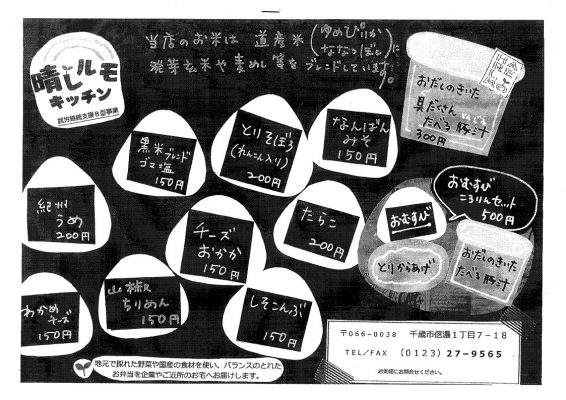 晴しルモ
キッチン
就労継続支援B型事業
当店のお米は 道産米(ゆめぴりか ななつぼし)に
発芽玄米や麦めし等をブレンドしています。
HAREルMO
おだしのきいた
具だくさん
たべる豚汁
300円
黒米ブレンド
ゴマ塩
150円
とりそぼろ
(れんこん入り)
200円
なんばん
みそ
150円
紀州
うめ
200円
チーズ
おかか
150円
たらこ
200円
おむすび
ころりんセット
500円
おむすび
とりからあげ
おだしのきいた
たべる豚汁
わかめ
チーズ
150円
山椒
ちりめん
150円
しそこんぶ
150円
〒066-0038 千歳市信濃1丁目7-18
TEL/FAX (0123)27-9565
お気軽にお問合せください。
地元で採れた野菜や国産の食材を使い、バランスのとれた
お弁当を企業やご近所のお宅へお届けします。